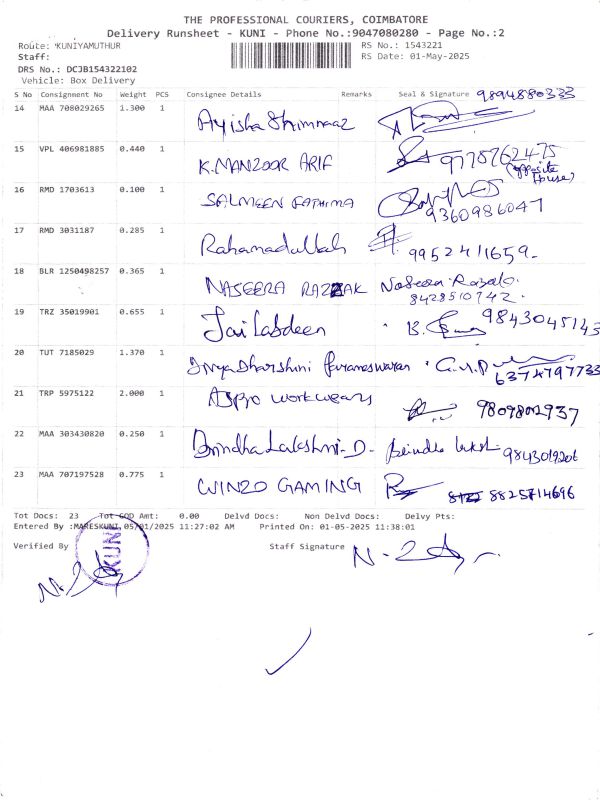 THE PROFESSIONAL COURIERS, COIMBATORE
Delivery Runsheet - KUNI - Phone No.:9047080280 - Page No.:2
Route: KUNIYAMUTHUR RS No.: 1543221
Staff: RS Date: 01-May-2025
DRS No.: DCJB154322102
Vehicle: Box Delivery
S No Consignment No Weight PCS Consignee Details Remarks Seal & Signature 9894880333
14 MAA 708029265 1.300 1 Ayisha
15 VPL 406981885 0.440 1 K.MANZOOR ARIF 9778762475
(opposite House)
16 RMD 1703613 0.100 1 SALMEEN FATHIMA
9360986047
17 RMD 3031187 0.285 1 Rahamadullah 9952411659-
18 BLR 1250498257 0.365 1 NASEERA RAZZAK Naseera
8428510742
19 TRZ 35019901 0.655 1 Jailabdeen 9843045143
20 TUT 7185029 1.370 1 Divya Dharshini Parameswaran
6374797733
21 TRP 5975122 2.000 1 Aspro workwears 9809802937
22 MAA 303430820 0.250 1 Brindha Lakshmi-D- Brindha 9843019206
23 MAA 707197528 0.775 1 WINZO GAMING 8825714696
Tot Docs: 23 Tot COD Amt: 0.00 Delvd Docs: Non Delvd Docs: Delvy Pts:
Entered By :MARESKUNI,05/01/2025 11:27:02 AM Printed On: 01-05-2025 11:38:01
Verified By KUNI Staff Signature